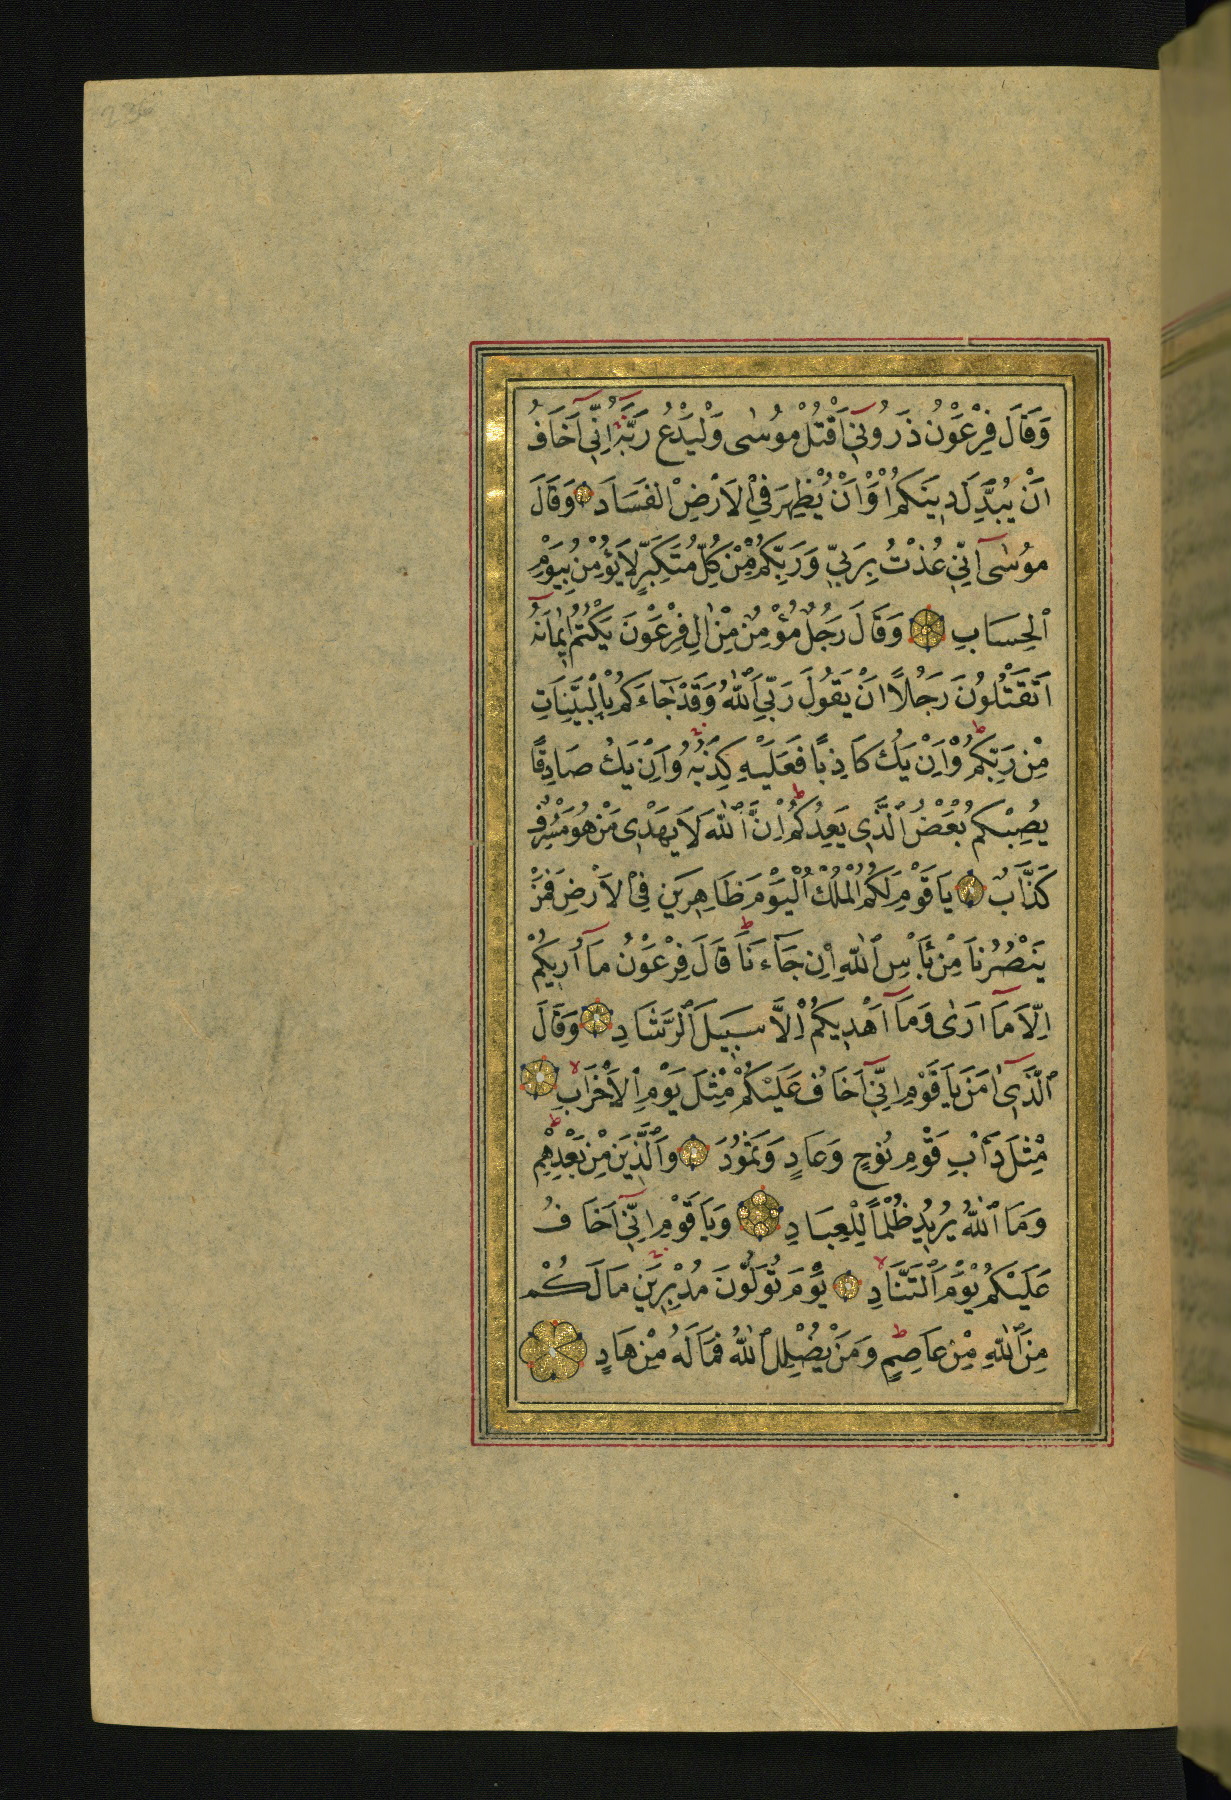 236
وَقَالَ فِرْعَوْنُ ذَرُونِي اَقْتُلْ مُوسٰى وَلْيَدْعُ رَبَّهُ اِنِّي اَخَافُ
اَنْ يُبَدِّلَ دِينَكُمْ اَوْ اَنْ يُظْهِرَ فِي الْاَرْضِ الْفَسَادَ وَقَالَ
مُوسٰى اِنِّي عُذْتُ بِرَبِّي وَرَبِّكُمْ مِنْ كُلِّ مُتَكَبِّرٍ لَا يُؤْمِنُ بِيَوْمِ
الْحِسَابِ وَقَالَ رَجُلٌ مُؤْمِنٌ مِنْ اٰلِ فِرْعَوْنَ يَكْتُمُ اِيمَانَهُ
اَتَقْتُلُونَ رَجُلًا اَنْ يَقُولَ رَبِّيَ اللّٰهُ وَقَدْ جَاءَكُمْ بِالْبَيِّنَاتِ
مِنْ رَبِّكُمْ وَاِنْ يَكُ كَاذِبًا فَعَلَيْهِ كَذِبُهُ وَاِنْ يَكُ صَادِقًا
يُصِبْكُمْ بَعْضُ الَّذِي يَعِدُكُمْ اِنَّ اللّٰهَ لَا يَهْدِي مَنْ هُوَ مُسْرِفٌ
كَذَّابٌ يَا قَوْمِ لَكُمُ الْمُلْكُ الْيَوْمَ ظَاهِرِينَ فِي الْاَرْضِ فَمَنْ
يَنْصُرُنَا مِنْ بَأْسِ اللّٰهِ اِنْ جَاءَنَا قَالَ فِرْعَوْنُ مَا اُرِيكُمْ
اِلَّا مَا اَرٰى وَمَا اَهْدِيكُمْ اِلَّا سَبِيلَ الرَّشَادِ وَقَالَ
الَّذِي اٰمَنَ يَا قَوْمِ اِنِّي اَخَافُ عَلَيْكُمْ مِثْلَ يَوْمِ الْاَحْزَابِ
مِثْلَ دَأْبِ قَوْمِ نُوحٍ وَعَادٍ وَثَمُودَ وَالَّذِينَ مِنْ بَعْدِهِمْ
وَمَا اللّٰهُ يُرِيدُ ظُلْمًا لِلْعِبَادِ وَيَا قَوْمِ اِنِّي اَخَافُ
عَلَيْكُمْ يَوْمَ التَّنَادِ يَوْمَ تُوَلُّونَ مُدْبِرِينَ مَا لَكُمْ
مِنَ اللّٰهِ مِنْ عَاصِمٍ وَمَنْ يُضْلِلِ اللّٰهُ فَمَا لَهُ مِنْ هَادٍ